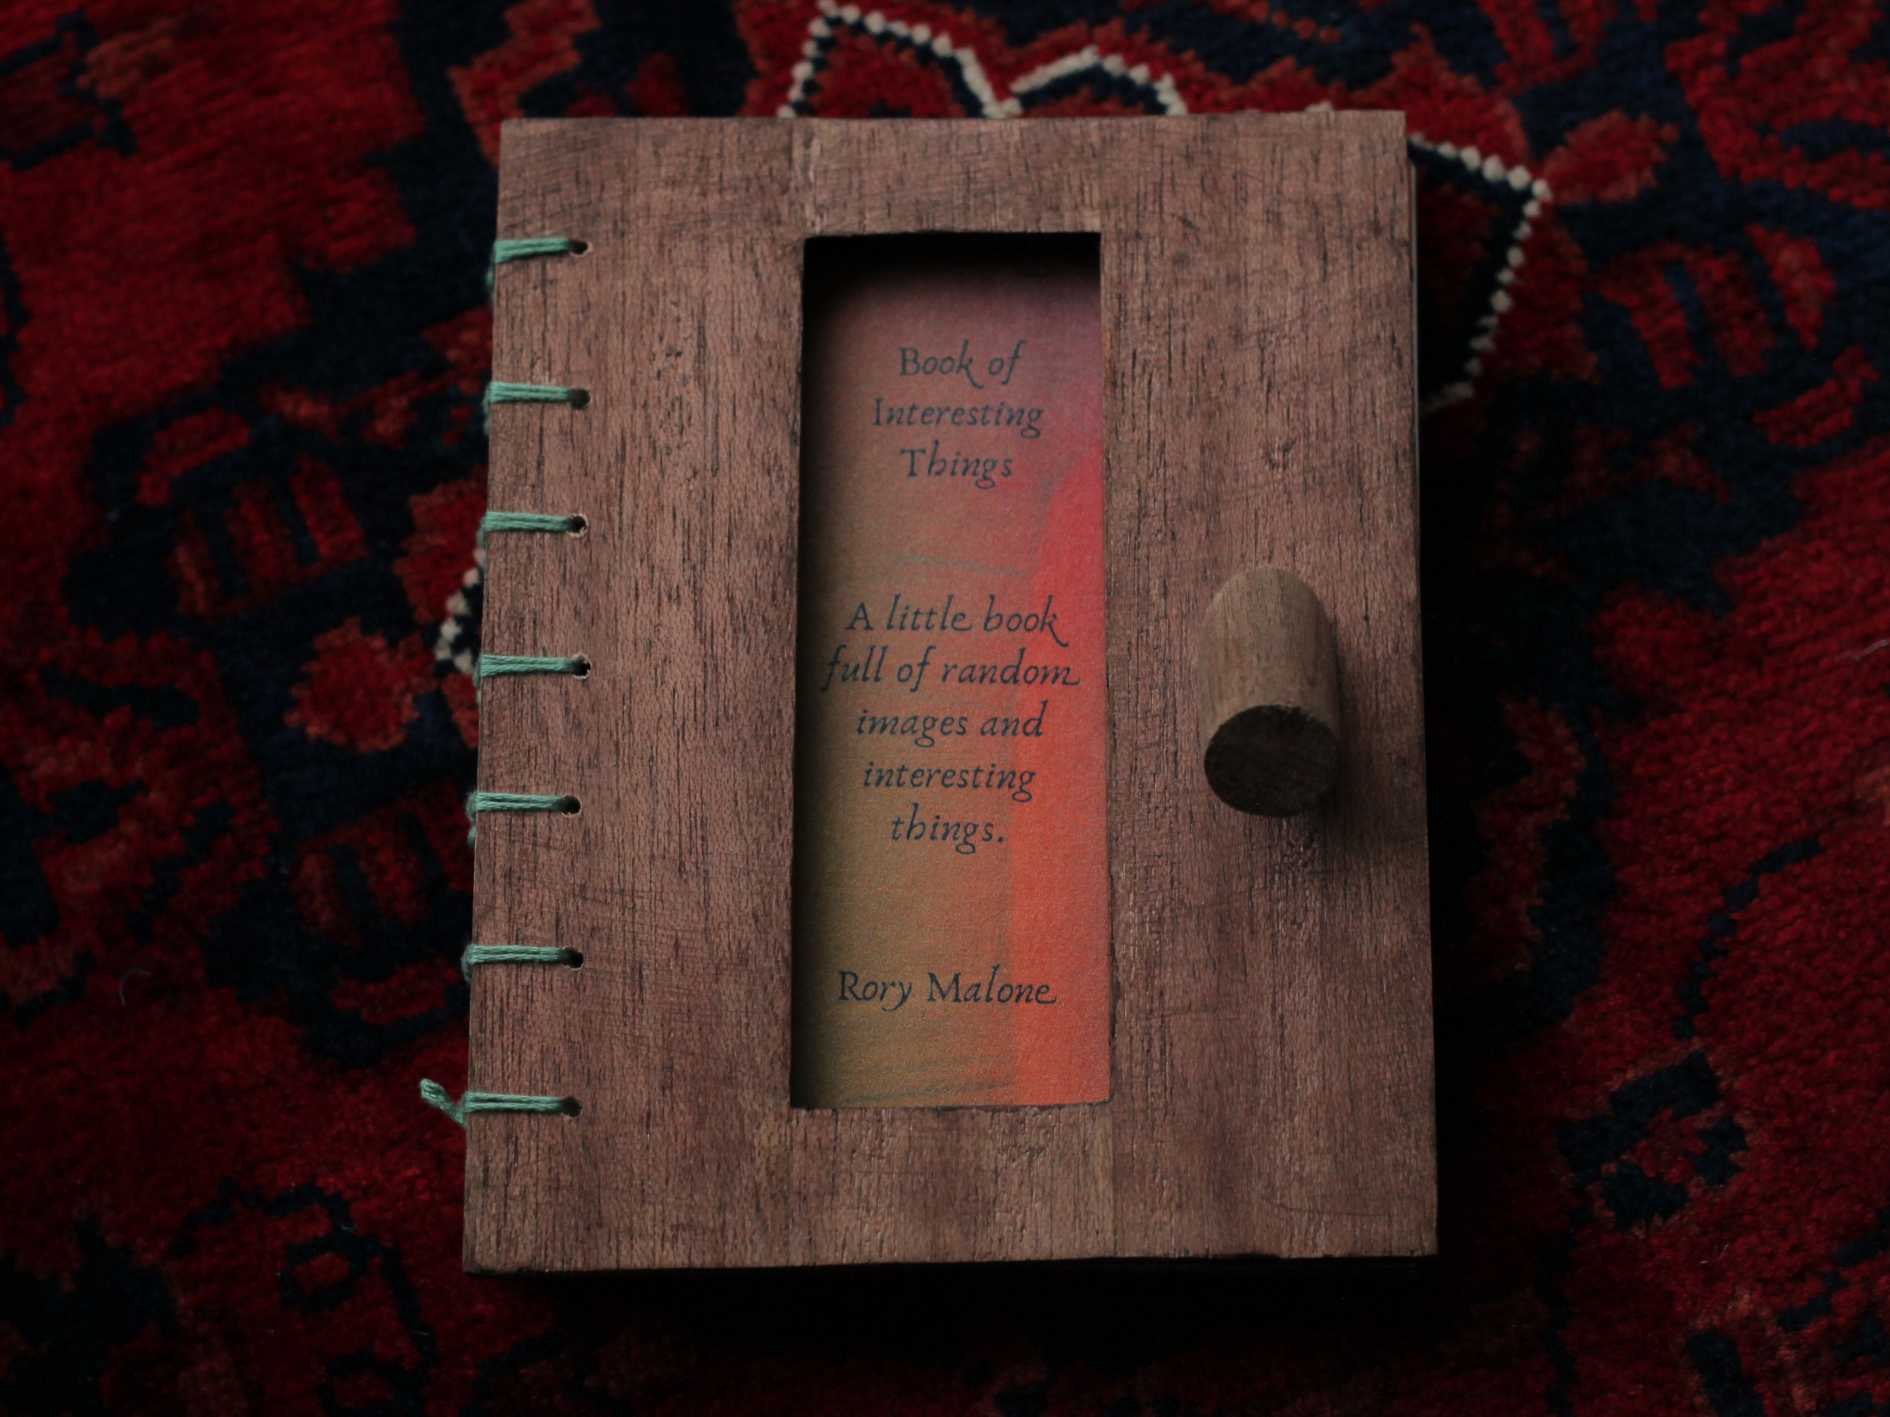 Book of
Interesting
Things
A little book
full of random
images and
interesting
things.
Rory Malone